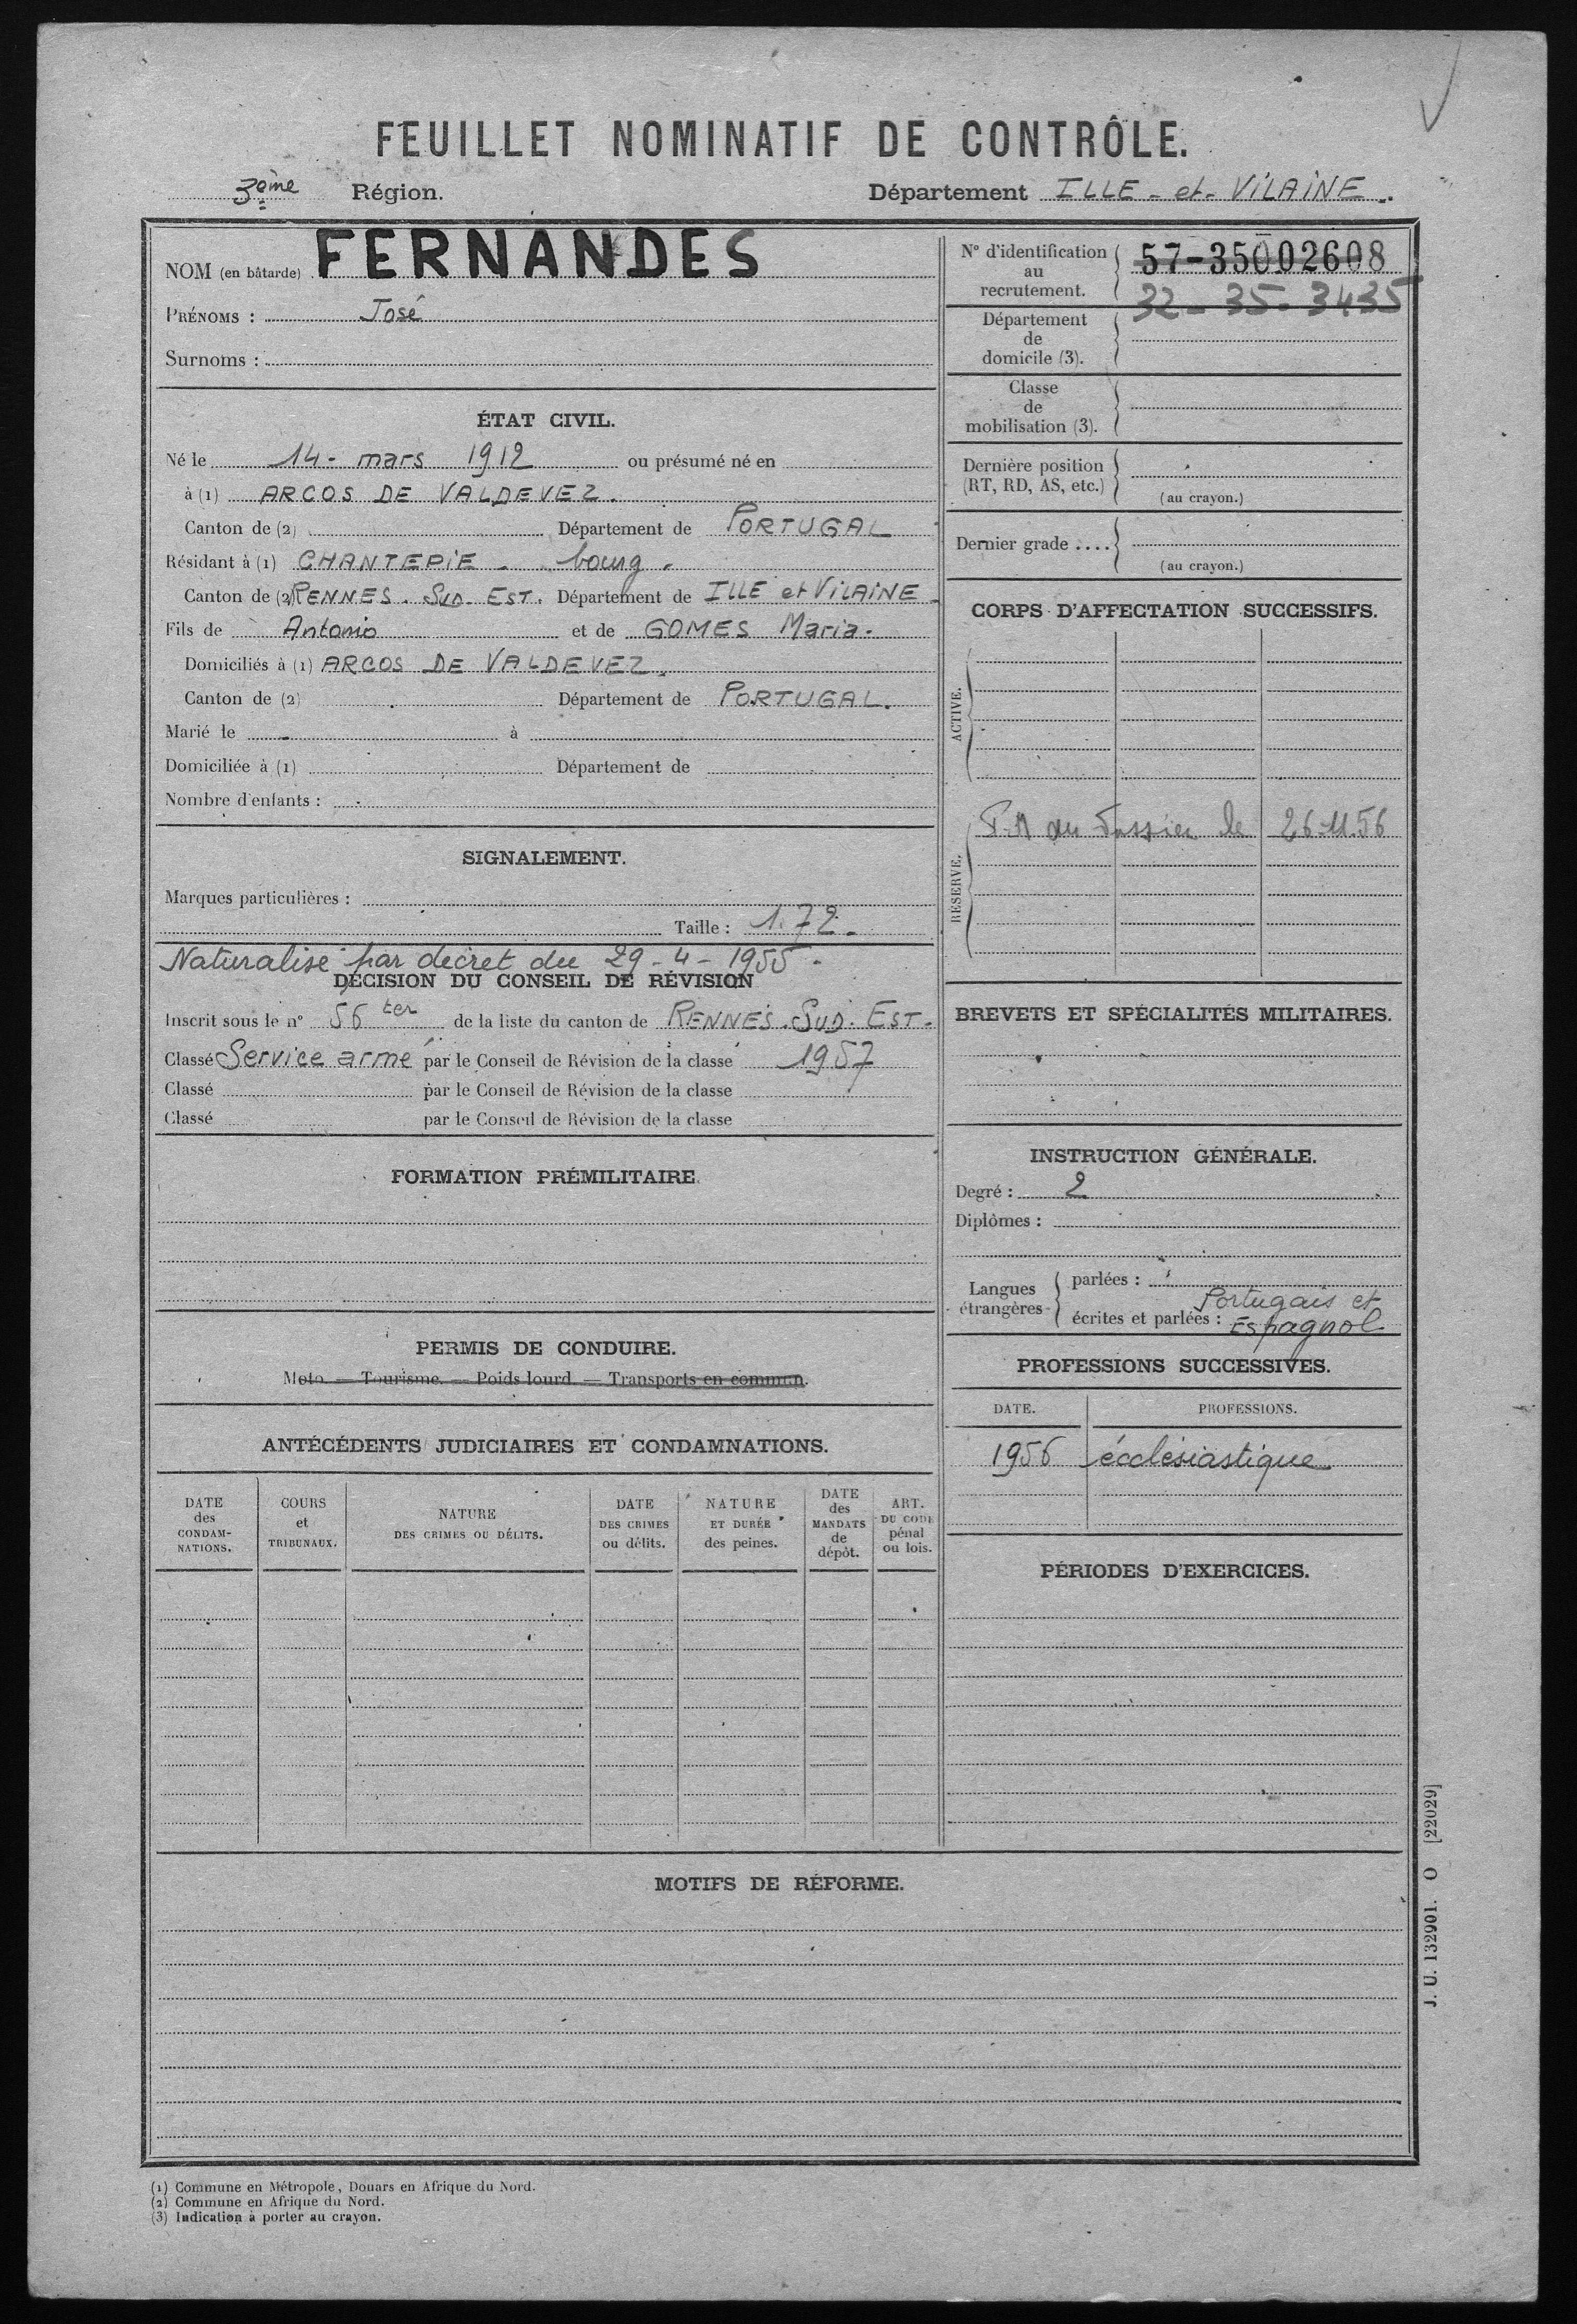 FEUILLET NOMINATIF DE CONTRÔLE.
3ème Région.
Département ILLE - et - VILAINE.
NOM (en bâtarde) FERNANDES
PRÉNOMS : José
Surnoms :
ÉTAT CIVIL.
Né le 14 - mars 1912 ou présumé né en
à (1) ARCOS DE VALDEVEZ.
Canton de (2) Département de PORTUGAL
Résidant à (1) CHANTEPIE - bourg.
Canton de (2) RENNES. SUD-EST. Département de ILLE et VILAINE
Fils de Antonio et de GOMES Maria.
Domiciliés à (1) ARCOS DE VALDEVEZ.
Canton de (2) Département de PORTUGAL.
Marié le - à
Domiciliée à (1) Département de
Nombre d'enfants :
SIGNALEMENT.
Marques particulières :
Taille : 1.72.
Naturalisé par décret du 29-4-1955.
DÉCISION DU CONSEIL DE RÉVISION
Inscrit sous le n° 56 ter de la liste du canton de RENNES. SUD. EST.
Classé Service armé par le Conseil de Révision de la classe 1957
Classé par le Conseil de Révision de la classe
Classé par le Conseil de Révision de la classe
FORMATION PRÉMILITAIRE.
PERMIS DE CONDUIRE.
Moto. — Tourisme. — Poids lourd. — Transports en commun.
ANTÉCÉDENTS JUDICIAIRES ET CONDAMNATIONS.
DATE des CONDAM-NATIONS.
COURS et TRIBUNAUX.
NATURE DES CRIMES OU DÉLITS.
DATE DES CRIMES ou délits.
NATURE ET DURÉE des peines.
DATE des MANDATS de dépôt.
ART. DU CODE pénal ou lois.
N° d'identification au recrutement. 57-35002608
32-35-3435
Département de domicile (3).
Classe de mobilisation (3).
Dernière position (RT, RD, AS, etc.)
(au crayon.)
Dernier grade ....
(au crayon.)
CORPS D'AFFECTATION SUCCESSIFS.
ACTIVE.
RÉSERVE.
du Dossier le 26.11.56
BREVETS ET SPÉCIALITÉS MILITAIRES.
INSTRUCTION GÉNÉRALE.
Degré : 2
Diplômes :
Langues étrangères
parlées :
écrites et parlées : Portugais et
Espagnol
PROFESSIONS SUCCESSIVES.
DATE. PROFESSIONS.
1956 écclésiastique
PÉRIODES D'EXERCICES.
MOTIFS DE RÉFORME.
(1) Commune en Métropole, Douars en Afrique du Nord.
(2) Commune en Afrique du Nord.
(3) Indication à porter au crayon.
J. U. 132901. O [22029]